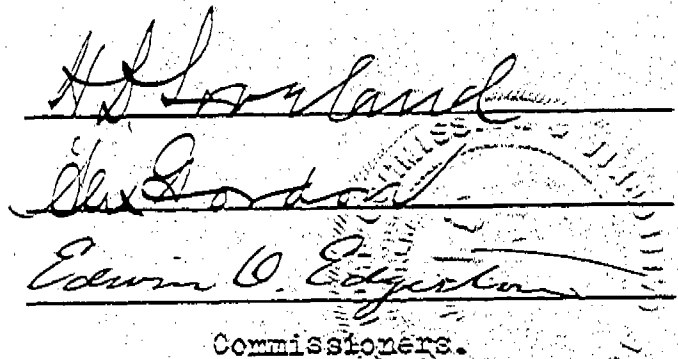 H D Loveland
Alex Gordon
Edwin O. Edgerton
Commissioners.